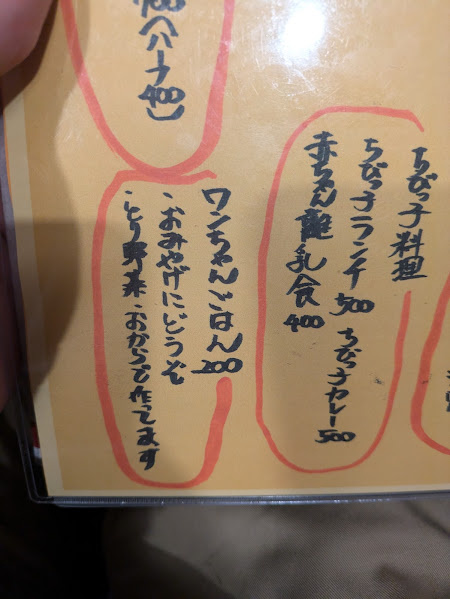 ちびっ子料理
ちびっ子ランチ 500
ちびっ子カレー 500
赤ちゃん離乳食 400
ワンちゃんごはん 200
・おみやげにどうぞ
・とり野菜・おからで作ってます
700(ハーフ400)